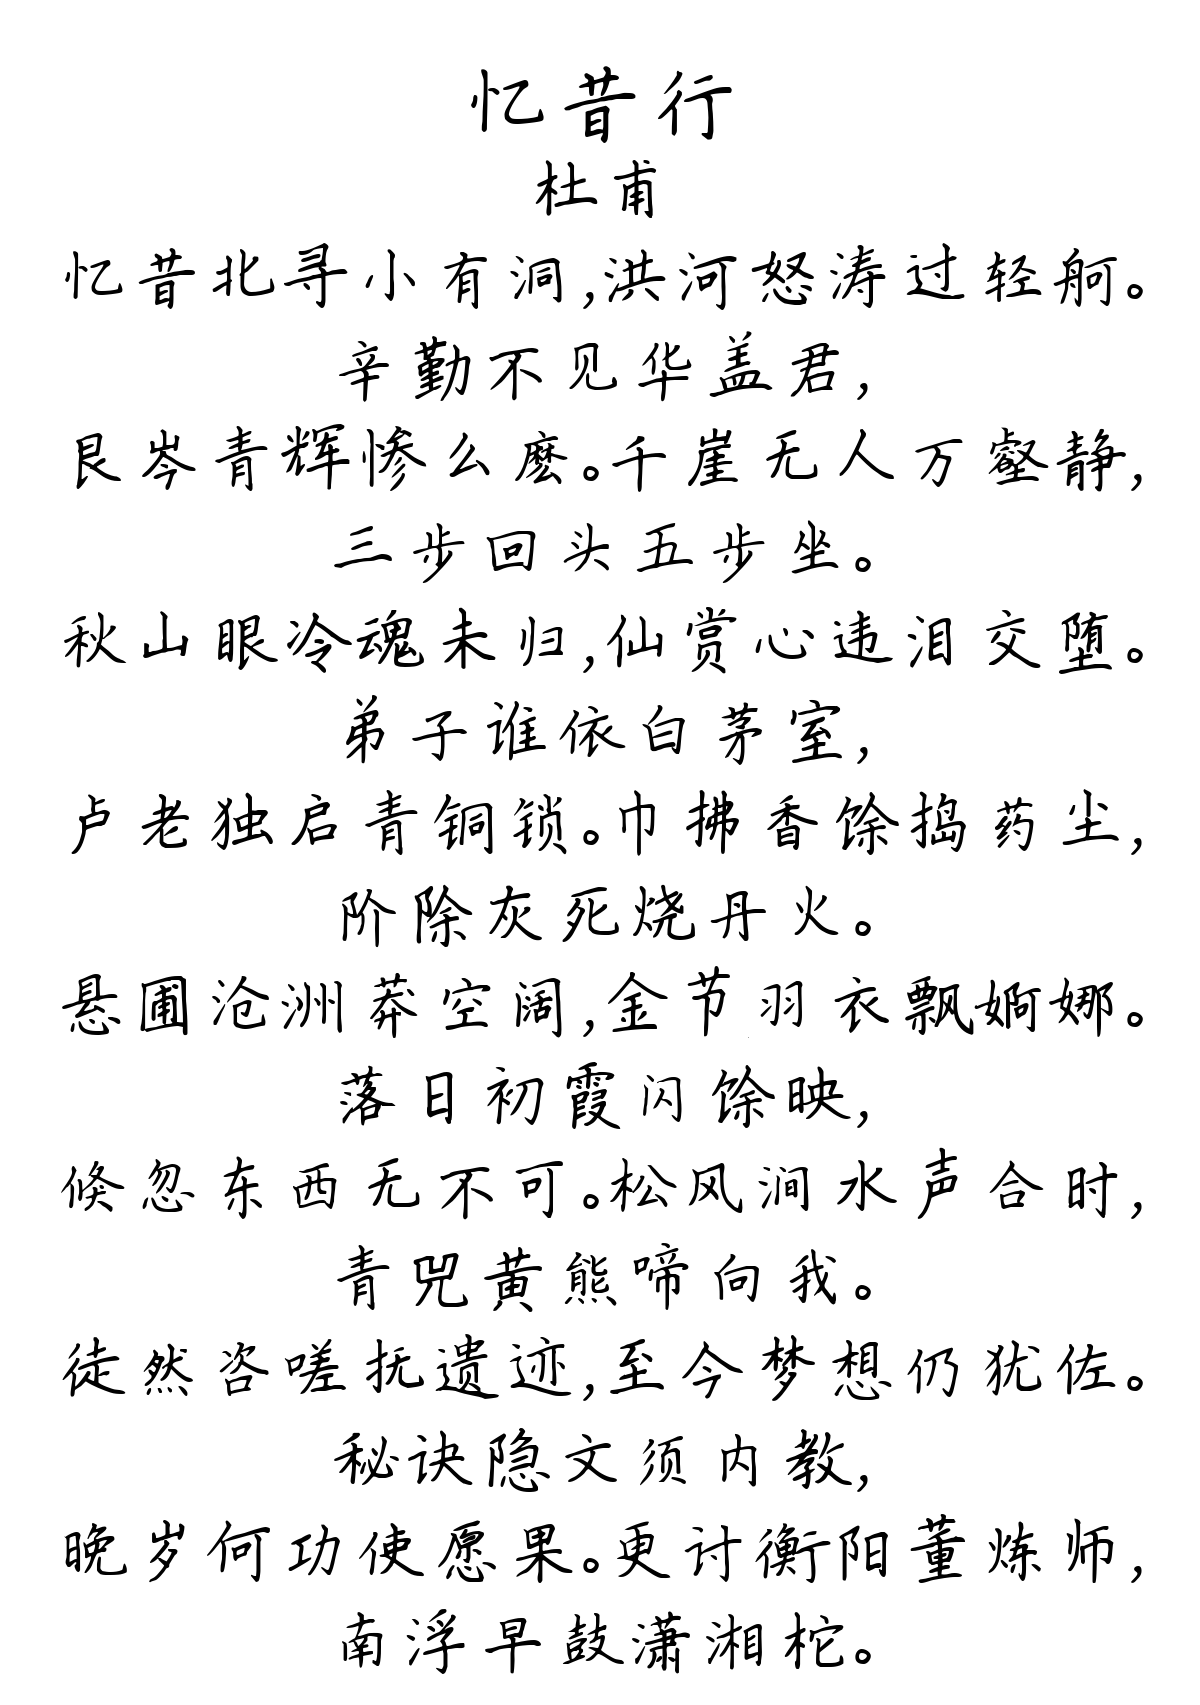 忆昔行
杜甫
忆昔北寻小有洞,洪河怒涛过轻舸。
辛勤不见华盖君,
艮岑青辉惨么麽。千崖无人万壑静,
三步回头五步坐。
秋山眼冷魂未归,仙赏心违泪交堕。
弟子谁依白茅室,
卢老独启青铜锁。巾拂香馀捣药尘,
阶除灰死烧丹火。
悬圃沧洲莽空阔,金节羽衣飘婀娜。
落日初霞闪馀映,
倏忽东西无不可。松风涧水声合时,
青兕黄熊啼向我。
徒然咨嗟抚遗迹,至今梦想仍犹佐。
秘诀隐文须内教,
晚岁何功使愿果。更讨衡阳董炼师,
南浮早鼓潇湘柁。